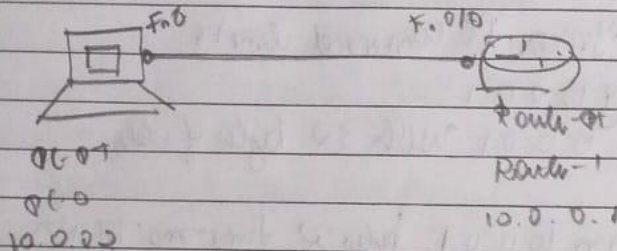 Fa0
F.0/0
PC-PT
PC0
10.0.0.2
Router-PT
Router-1
10.0.0.1